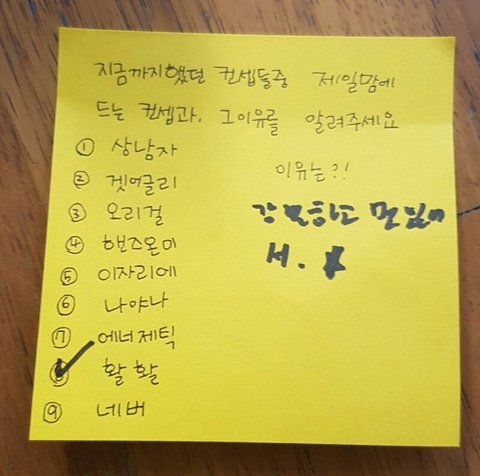 지금까지했던 컨셉들중 제일맘에
드는 컨셉과, 그이유를 알려주세요
① 상남자
② 겟어글리
이유는?!
③ 오리걸
강렬하고 멋있어
④ 핸즈온미
서.
⑤ 이자리에
⑥ 나야나
⑦ 에너제틱
⑧ 활활
⑨ 네버